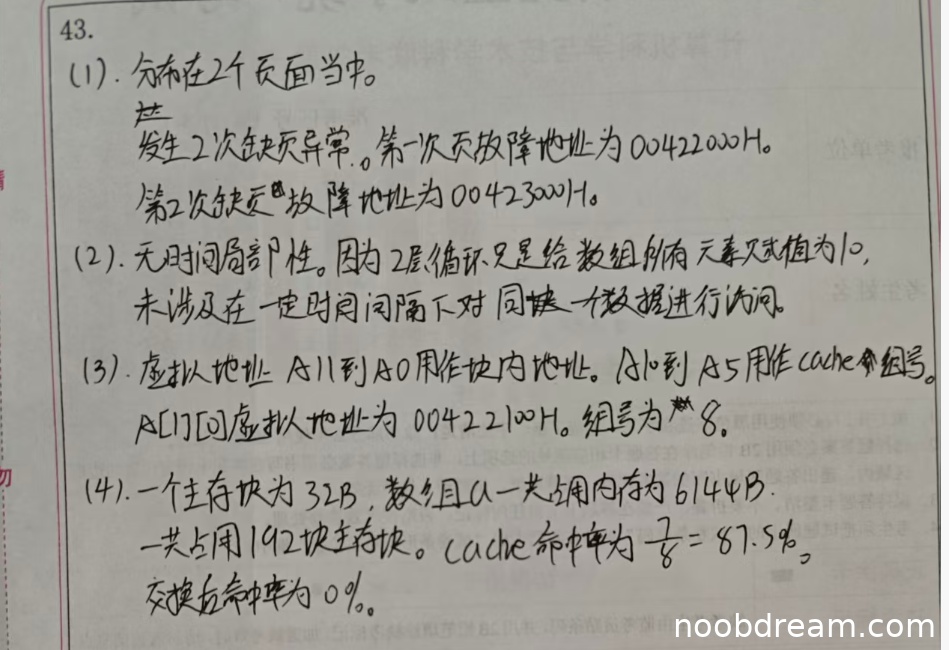 43.
(1). 分布在2个页面当中。
发生2次缺页异常。第一次页故障地址为00422000H。
第2次缺页故障地址为00423000H。
(2). 无时间局部性。因为2层循环只是给数组所有元素赋值为10,
未涉及在一定时间间隔下对同一个数据进行访问。
(3). 虚拟地址A11到A0用作块内地址。A10到A5用作cache组号。
A[1][0]虚拟地址为00422100H。组号为8。
(4). 一个主存块为32B,数组a一共占用内存为6144B.
一共占用192块主存块。cache命中率为7/8=87.5%。
交换后命中率为0%。
noobdream.com